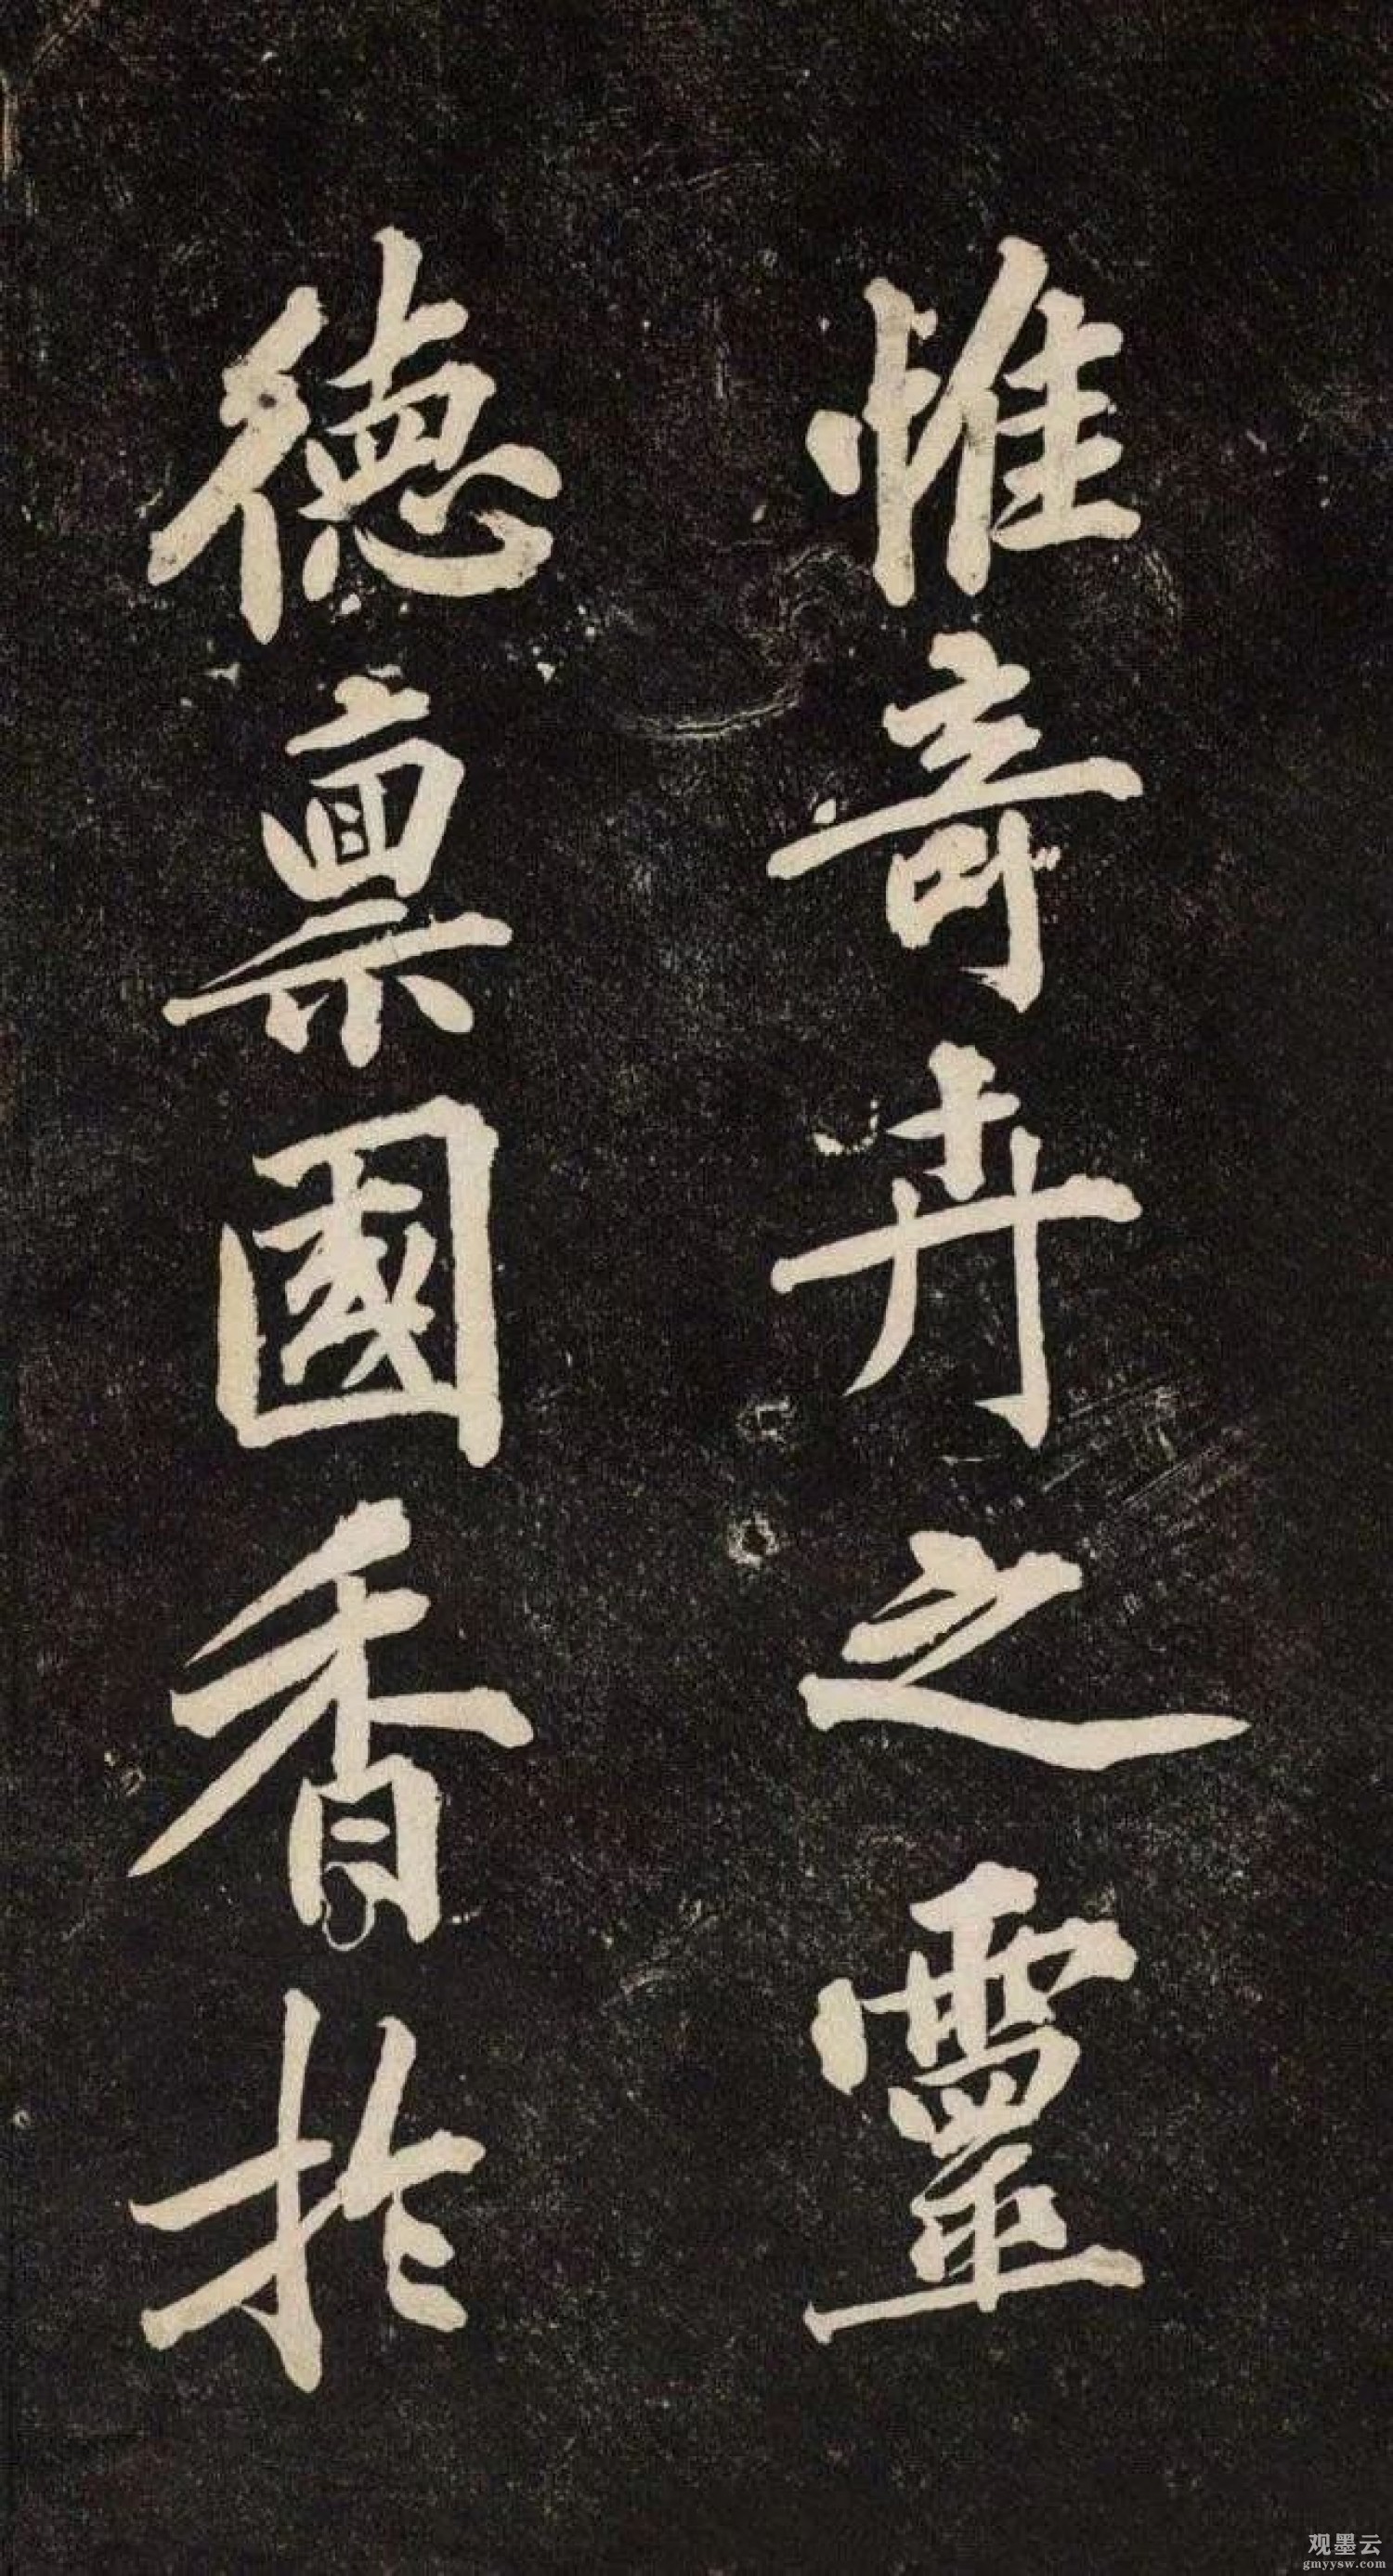 惟奇卉之靈
德稟國香於
观墨云
gmyysw.com